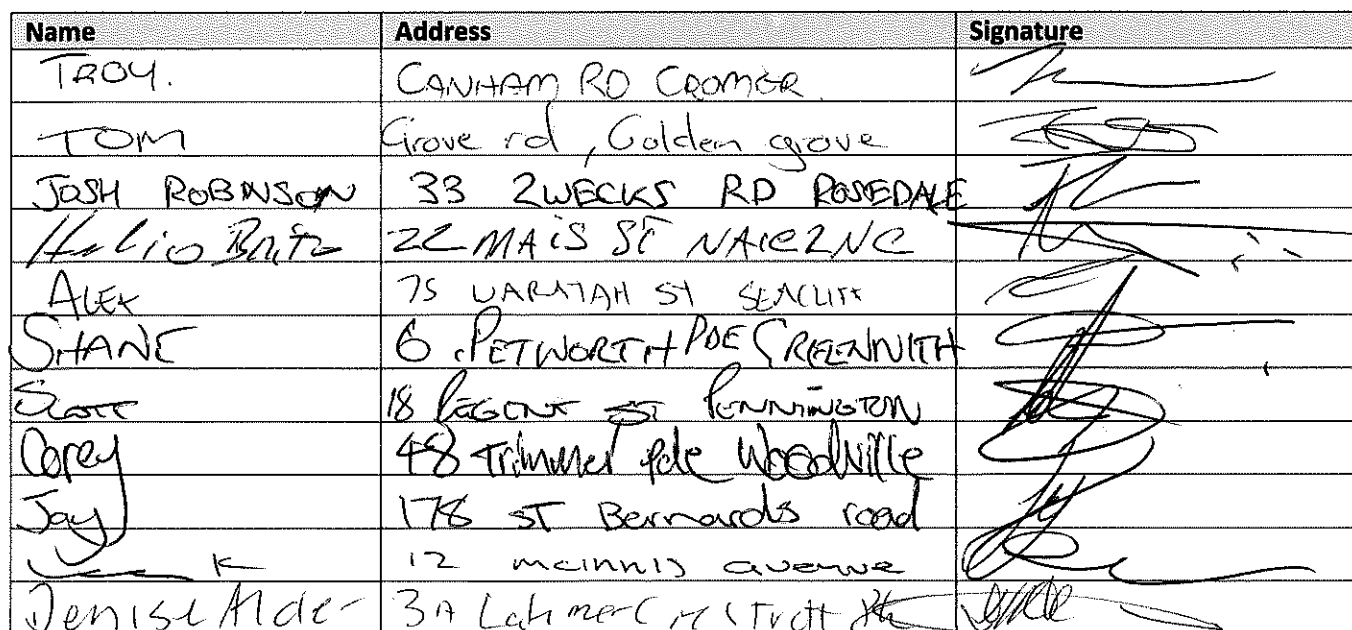 Name Address Signature
TROY. CANHAM RD CROMER.
TOM Grove rd, Golden grove
JOSH ROBINSON 33 ZWECKS RD ROSEDALE
Helio Brito 22 MAIS ST
ALEX 75 WARATAH ST SEACLIFF
SHANE 6 PETWORTH PDE GREENWITH
SCOTT 18 REGENT ST PENNINGTON
Corey 48 Trimmer pde Woodville
Jay 178 ST Bernards road
K 12 mcinnis avenue
Denise Alder 3A